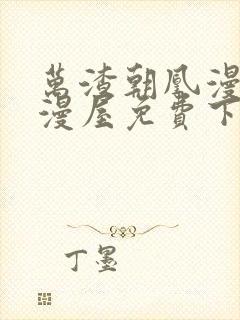 萬渣朝凰漫
漫屋免費下
丁墨